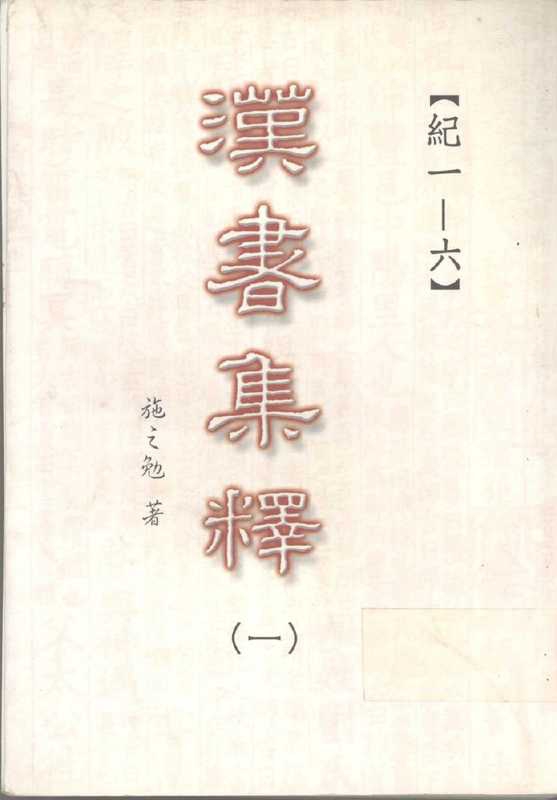 【紀一—六】
漢書集釋(一)
施之勉 著